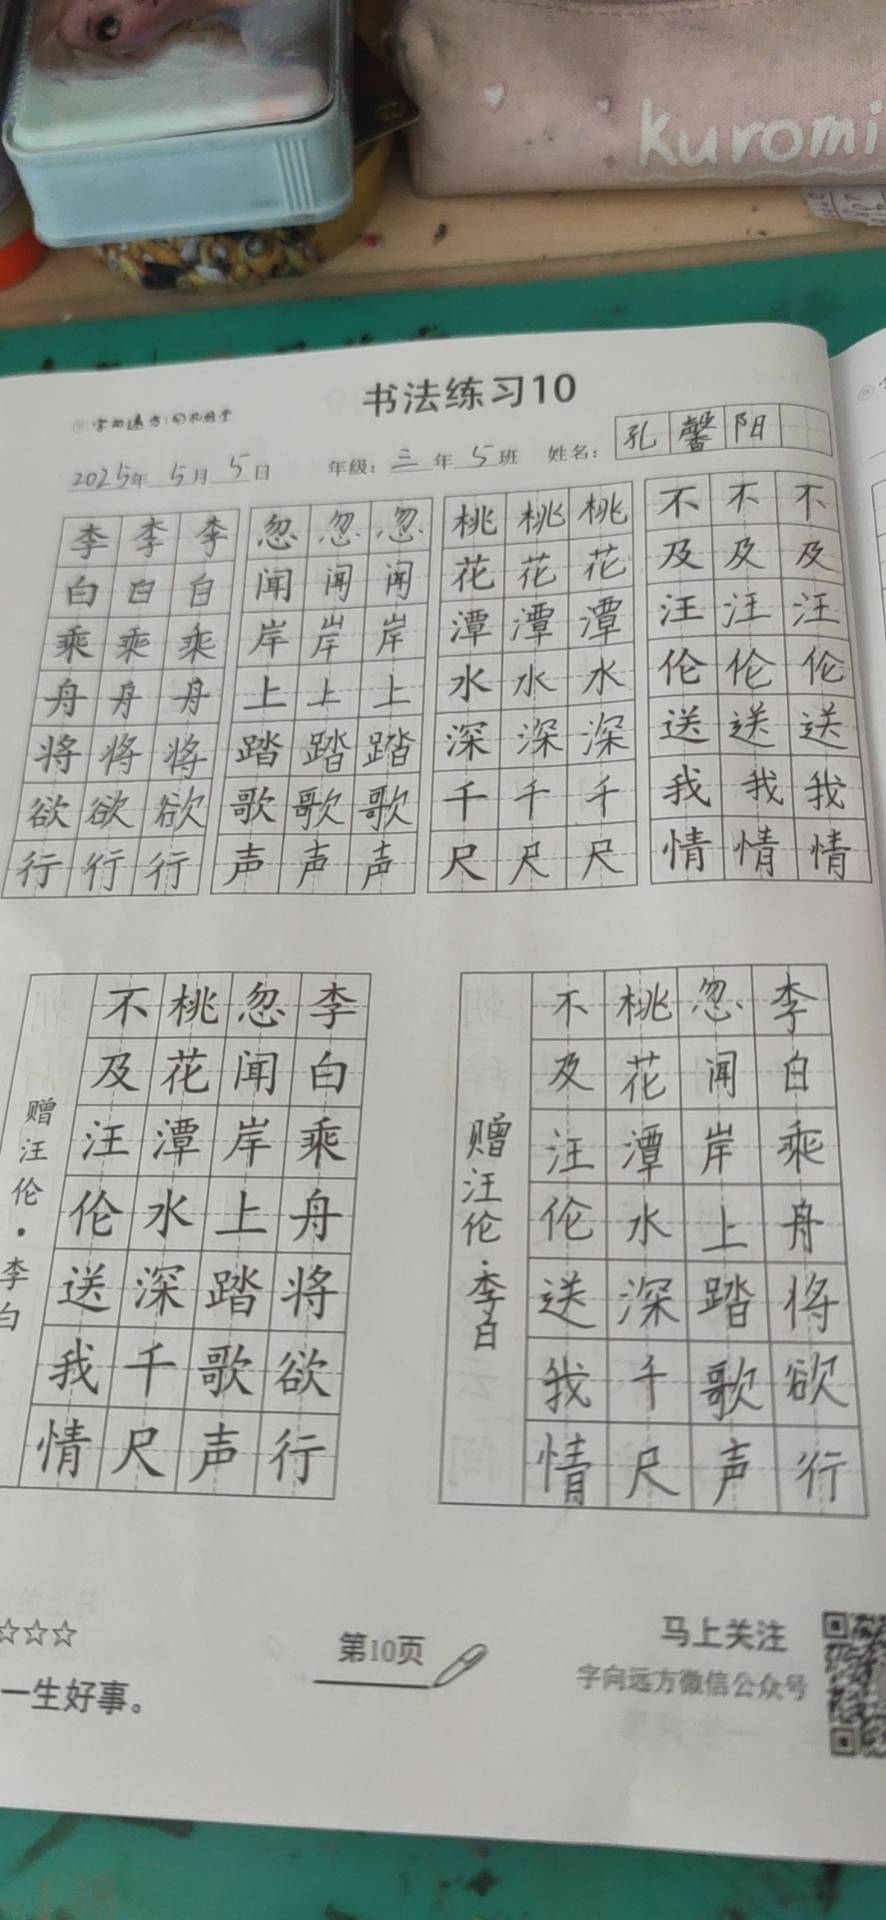 kuromi
书法练习10
2025年 5月 5日 年级：三年5班 姓名：孔馨阳
李李李 忽忽忽 桃桃桃 不不不
白白白 闻闻闻 花花花 及及及
乘乘乘 岸岸岸 潭潭潭 汪汪汪
舟舟舟 上上上 水水水 伦伦伦
将将将 踏踏踏 深深深 送送送
欲欲欲 歌歌歌 千千千 我我我
行行行 声声声 尺尺尺 情情情
李白乘舟将欲行
忽闻岸上踏歌声
桃花潭水深千尺
不及汪伦送我情
赠汪伦·李白
李白乘舟将欲行
忽闻岸上踏歌声
桃花潭水深千尺
不及汪伦送我情
赠汪伦·李白
☆☆☆
一生好事。
第10页
马上关注
字向远方微信公众号